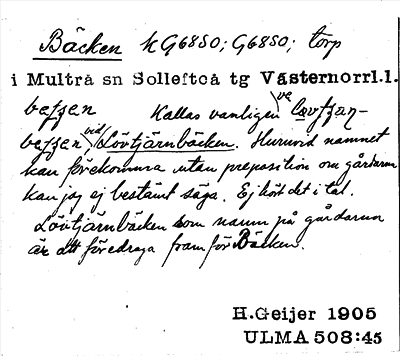 Bäcken kG6850; G6850; torp
i Multrå sn Sollefteå tg Västernorrl.l.
Kallas vanligen
vid Lövtjärnbäcken. Huruvid namnet
kan förekomma utan preposition om gårdarna
kan jag ej bestämt säga. Ej hört det i tal.
Lövtjärnbäcken som namn på gårdarna
är att föredraga framför Bäcken.
H.Geijer 1905
ULMA 508:45